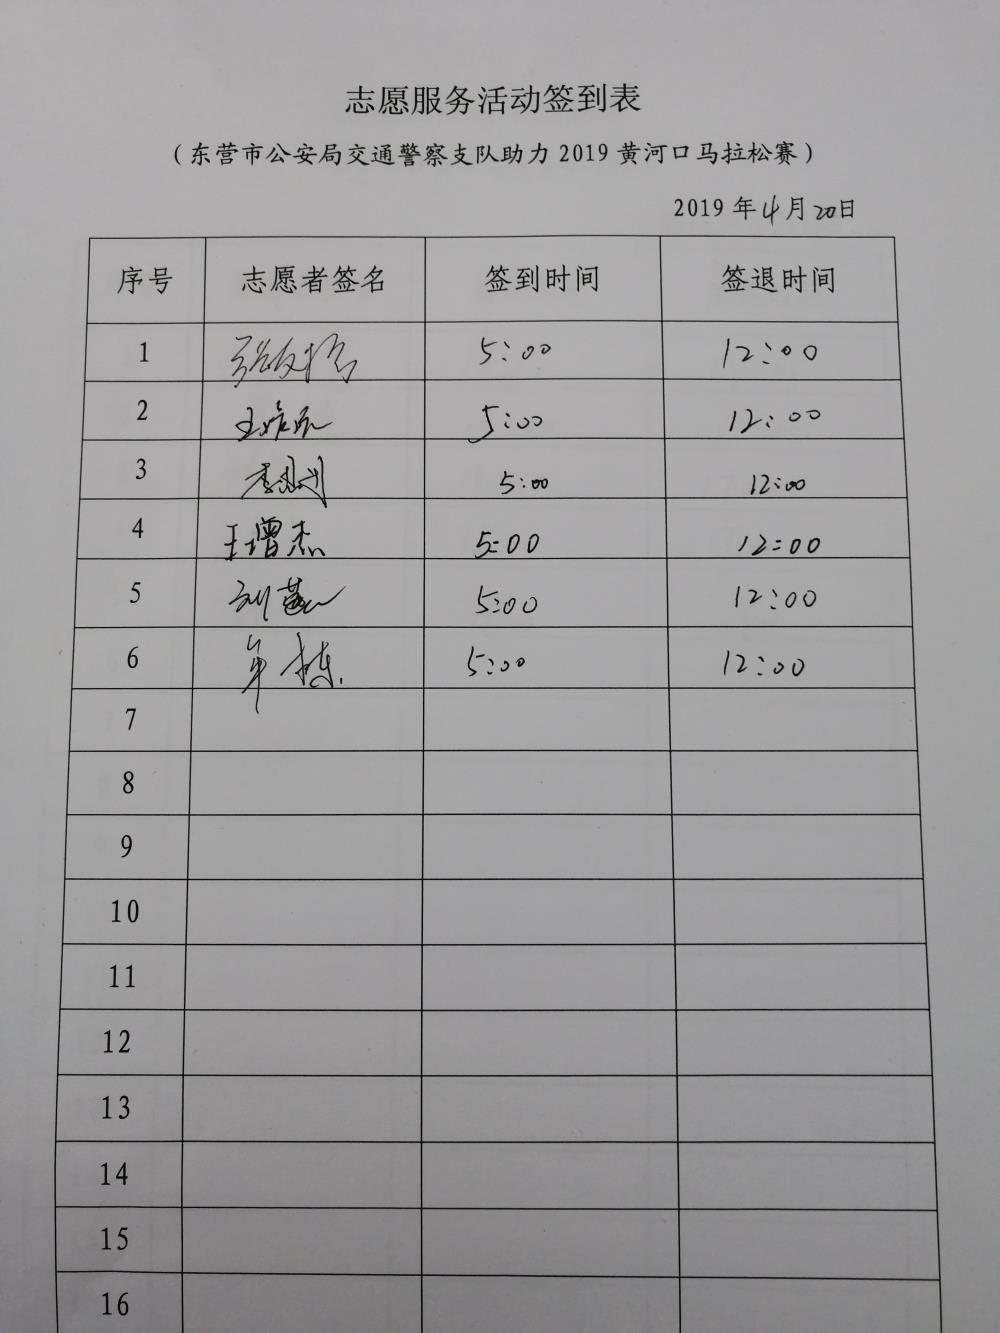 志愿服务活动签到表
（东营市公安局交通警察支队助力 2019 黄河口马拉松赛）
2019 年 4 月 20 日
序号 志愿者签名 签到时间 签退时间
1 5:00 12:00
2 王 5:00 12:00
3 李 5:00 12:00
4 王增杰 5:00 12:00
5 刘 5:00 12:00
6 牟栋 5:00 12:00
7
8
9
10
11
12
13
14
15
16